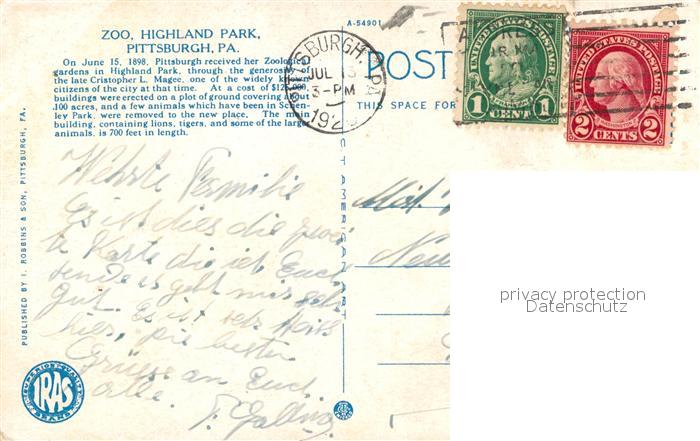 ZOO, HIGHLAND PARK,
PITTSBURGH, PA.
On June 15, 1898, Pittsburgh received her Zoological
gardens in Highland Park, through the generosity of
the late Cristopher L. Magee, one of the widely known
citizens of the city at that time. At a cost of $125,000,
buildings were erected on a plot of ground covering about
100 acres, and a few animals which have been in Schen-
ley Park, were removed to the new place. The main
building, containing lions, tigers, and some of the larger
animals, is 700 feet in length.
PUBLISHED BY I. ROBBINS & SON, PITTSBURGH, PA.
A-54901
POST
THIS SPACE FOR
PITTSBURGH, PA
JUL 13
3-PM
192
UNITED STATES POSTAGE
1 CENT 1
UNITED STATES POSTAGE
2 CENTS 2
C T AMERICAN ART
Werte Familie
Es ist dies die zwei
te Karte die ich Euch
sende es geht mir sehr
gut. Es ist sehr heiss
hier, die besten
Grüsse an Euch
alle.
New
privacy protection
Datenschutz
IRAS